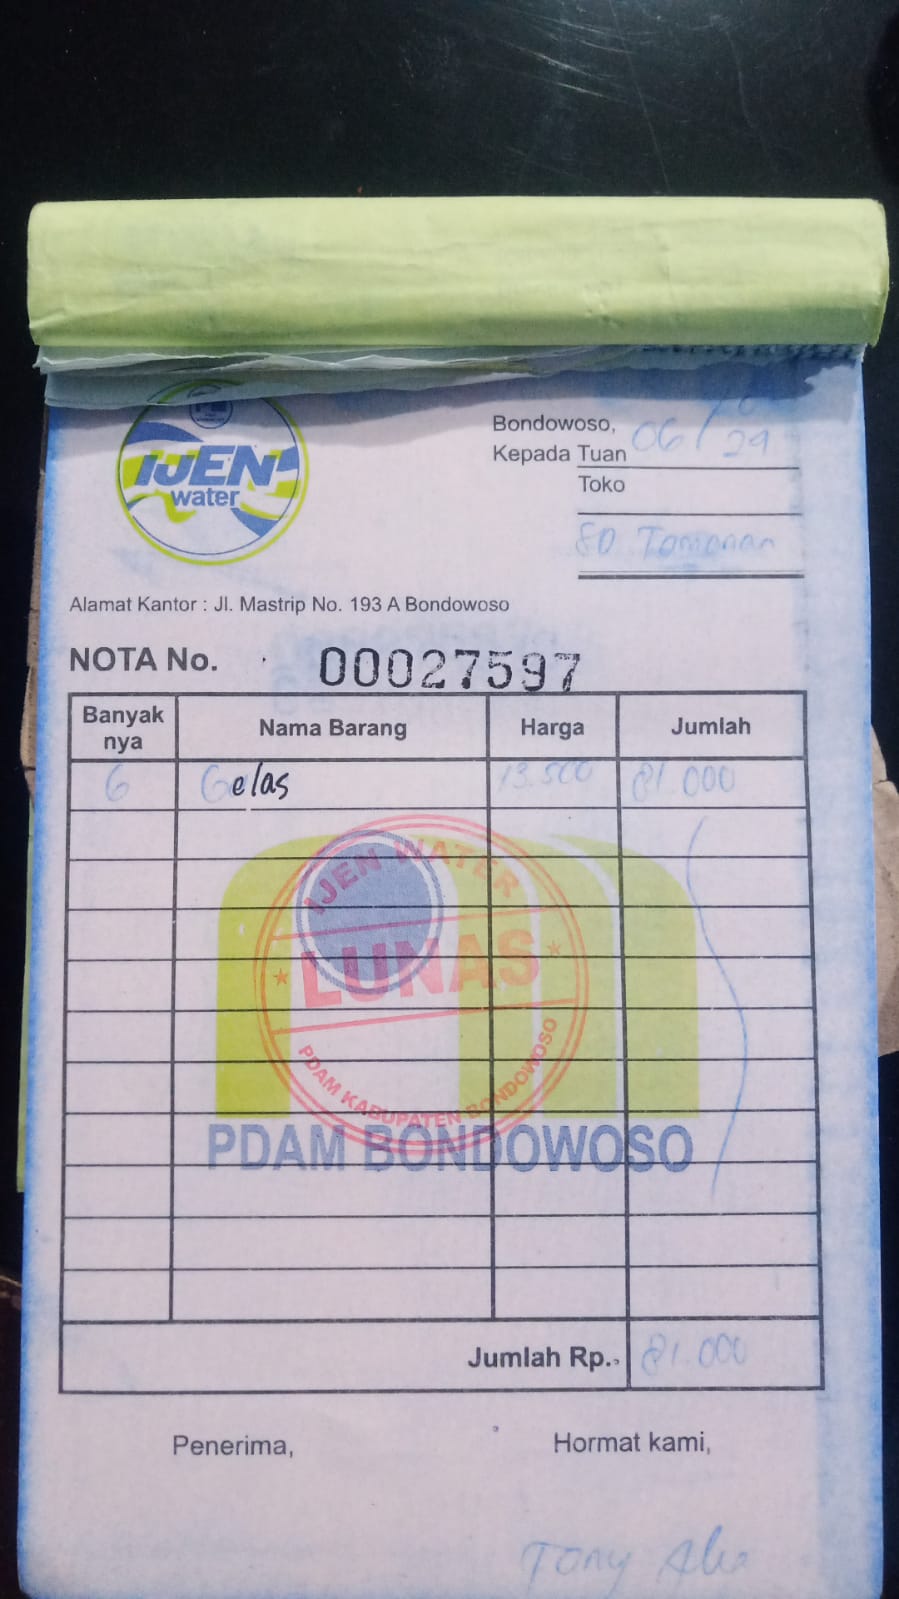 IJEN
water
Bondowoso, 06 / 29
Kepada Tuan
Toko
Tamanan
Alamat Kantor : Jl. Mastrip No. 193 A Bondowoso
NOTA No. 00027597
Banyak nya Nama Barang Harga Jumlah
6 Gelas 13.500 81.000
IJEN WATER
LUNAS
PDAM KABUPATEN BONDOWOSO
PDAM BONDOWOSO
Jumlah Rp. 81.000
Penerima, Hormat kami,
Tony